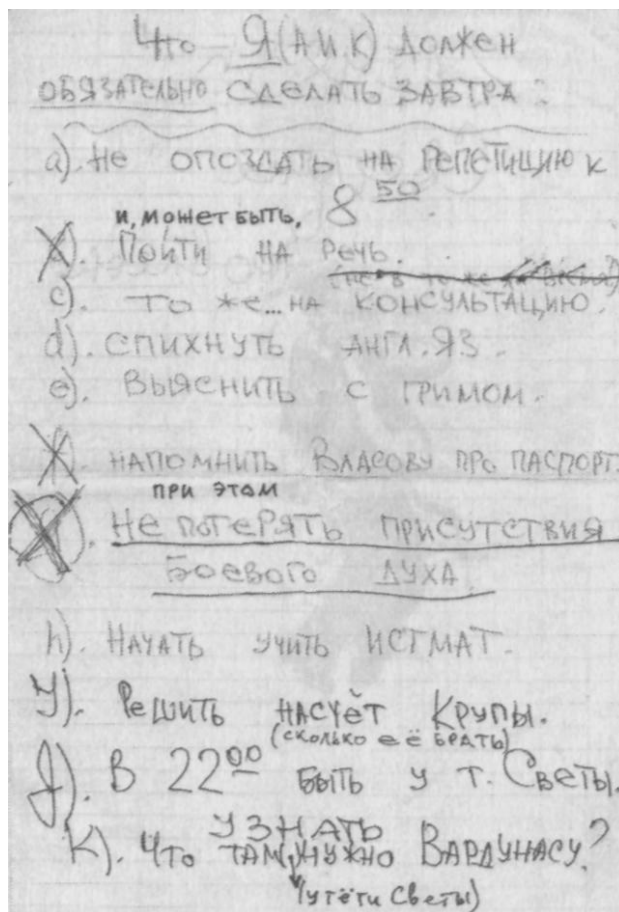 Что – Я (А.И.К) ДОЛЖЕН
ОБЯЗАТЕЛЬНО СДЕЛАТЬ ЗАВТРА:
а). НЕ ОПОЗДАТЬ НА РЕПЕТИЦИЮ К
8 50
и, может быть,
ПОЙТИ НА РЕЧЬ.
(не в то же время)
с). ТО ЖЕ... НА КОНСУЛЬТАЦИЮ.
d). СПИХНУТЬ АНГЛ. ЯЗ.
е). ВЫЯСНИТЬ С ГРИМОМ.
f. НАПОМНИТЬ ВЛАСОВУ ПРО ПАСПОРТ.
ПРИ ЭТОМ
НЕ ПОТЕРЯТЬ ПРИСУТСТВИЯ
БОЕВОГО ДУХА.
h). НАЧАТЬ УЧИТЬ ИСТМАТ.
У). РЕШИТЬ НАСЧЁТ КРУПЫ.
(СКОЛЬКО ЕЁ БРАТЬ)
J). В 22 00 БЫТЬ У Т. СВЕТЫ.
УЗНАТЬ
К). ЧТО ТАМ НУЖНО ВАРДУНАСУ?
(у тёти Светы)